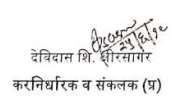 २५/६/१८
देविदास शि. क्षीरसागर
करनिर्धारक व संकलक (प्र)